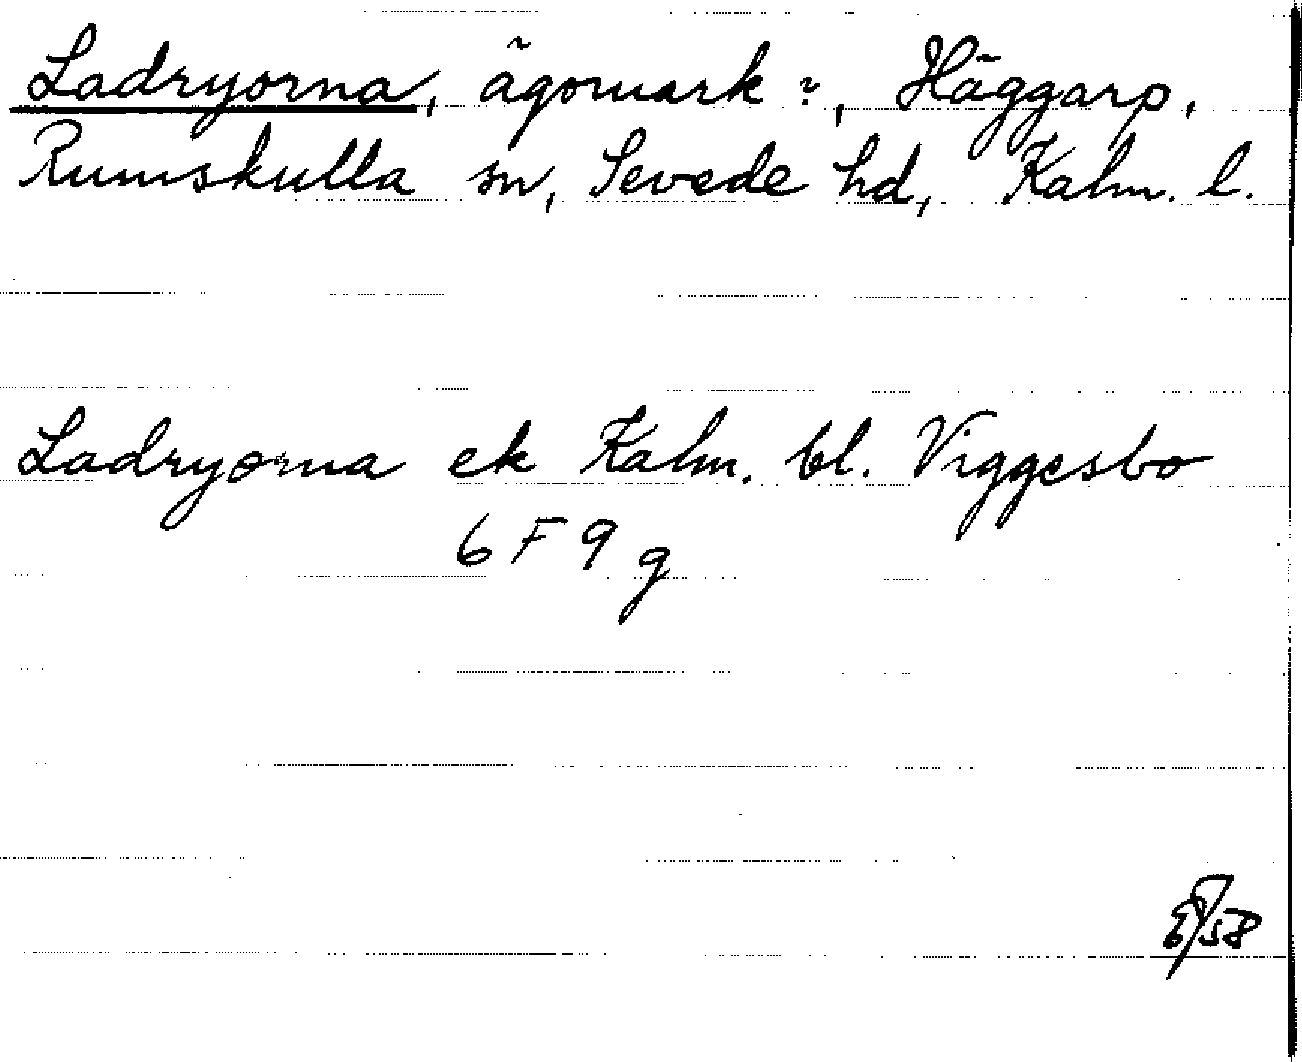 Ladryorna, ägomark?, Häggarp,
Rumskulla sn, Sevede hd, Kalm. l.
Ladryorna ek Kalm. bl. Viggesbo
6 F 9 g